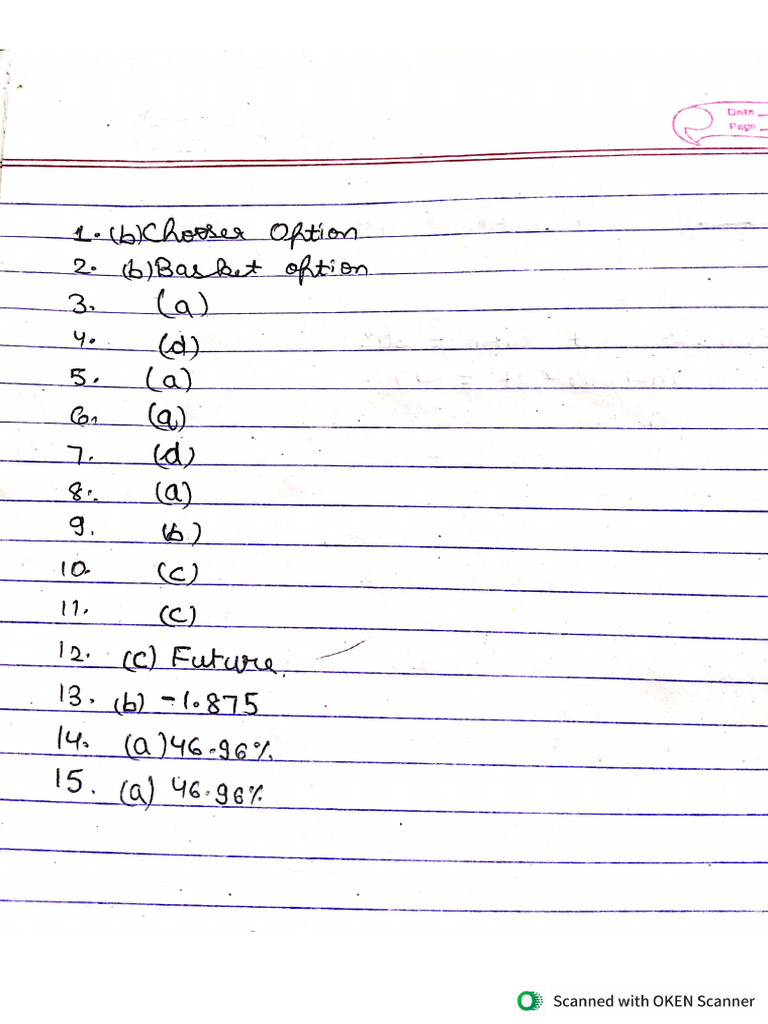 Date
Page
1. (b) Chooser Option
2. (b) Basket option
3. (a)
4. (d)
5. (a)
6. (a)
7. (d)
8. (a)
9. (b)
10. (c)
11. (c)
12. (c) Future.
13. (b) -1.875
14. (a) 46.96%
15. (a) 46.96%
Scanned with OKEN Scanner